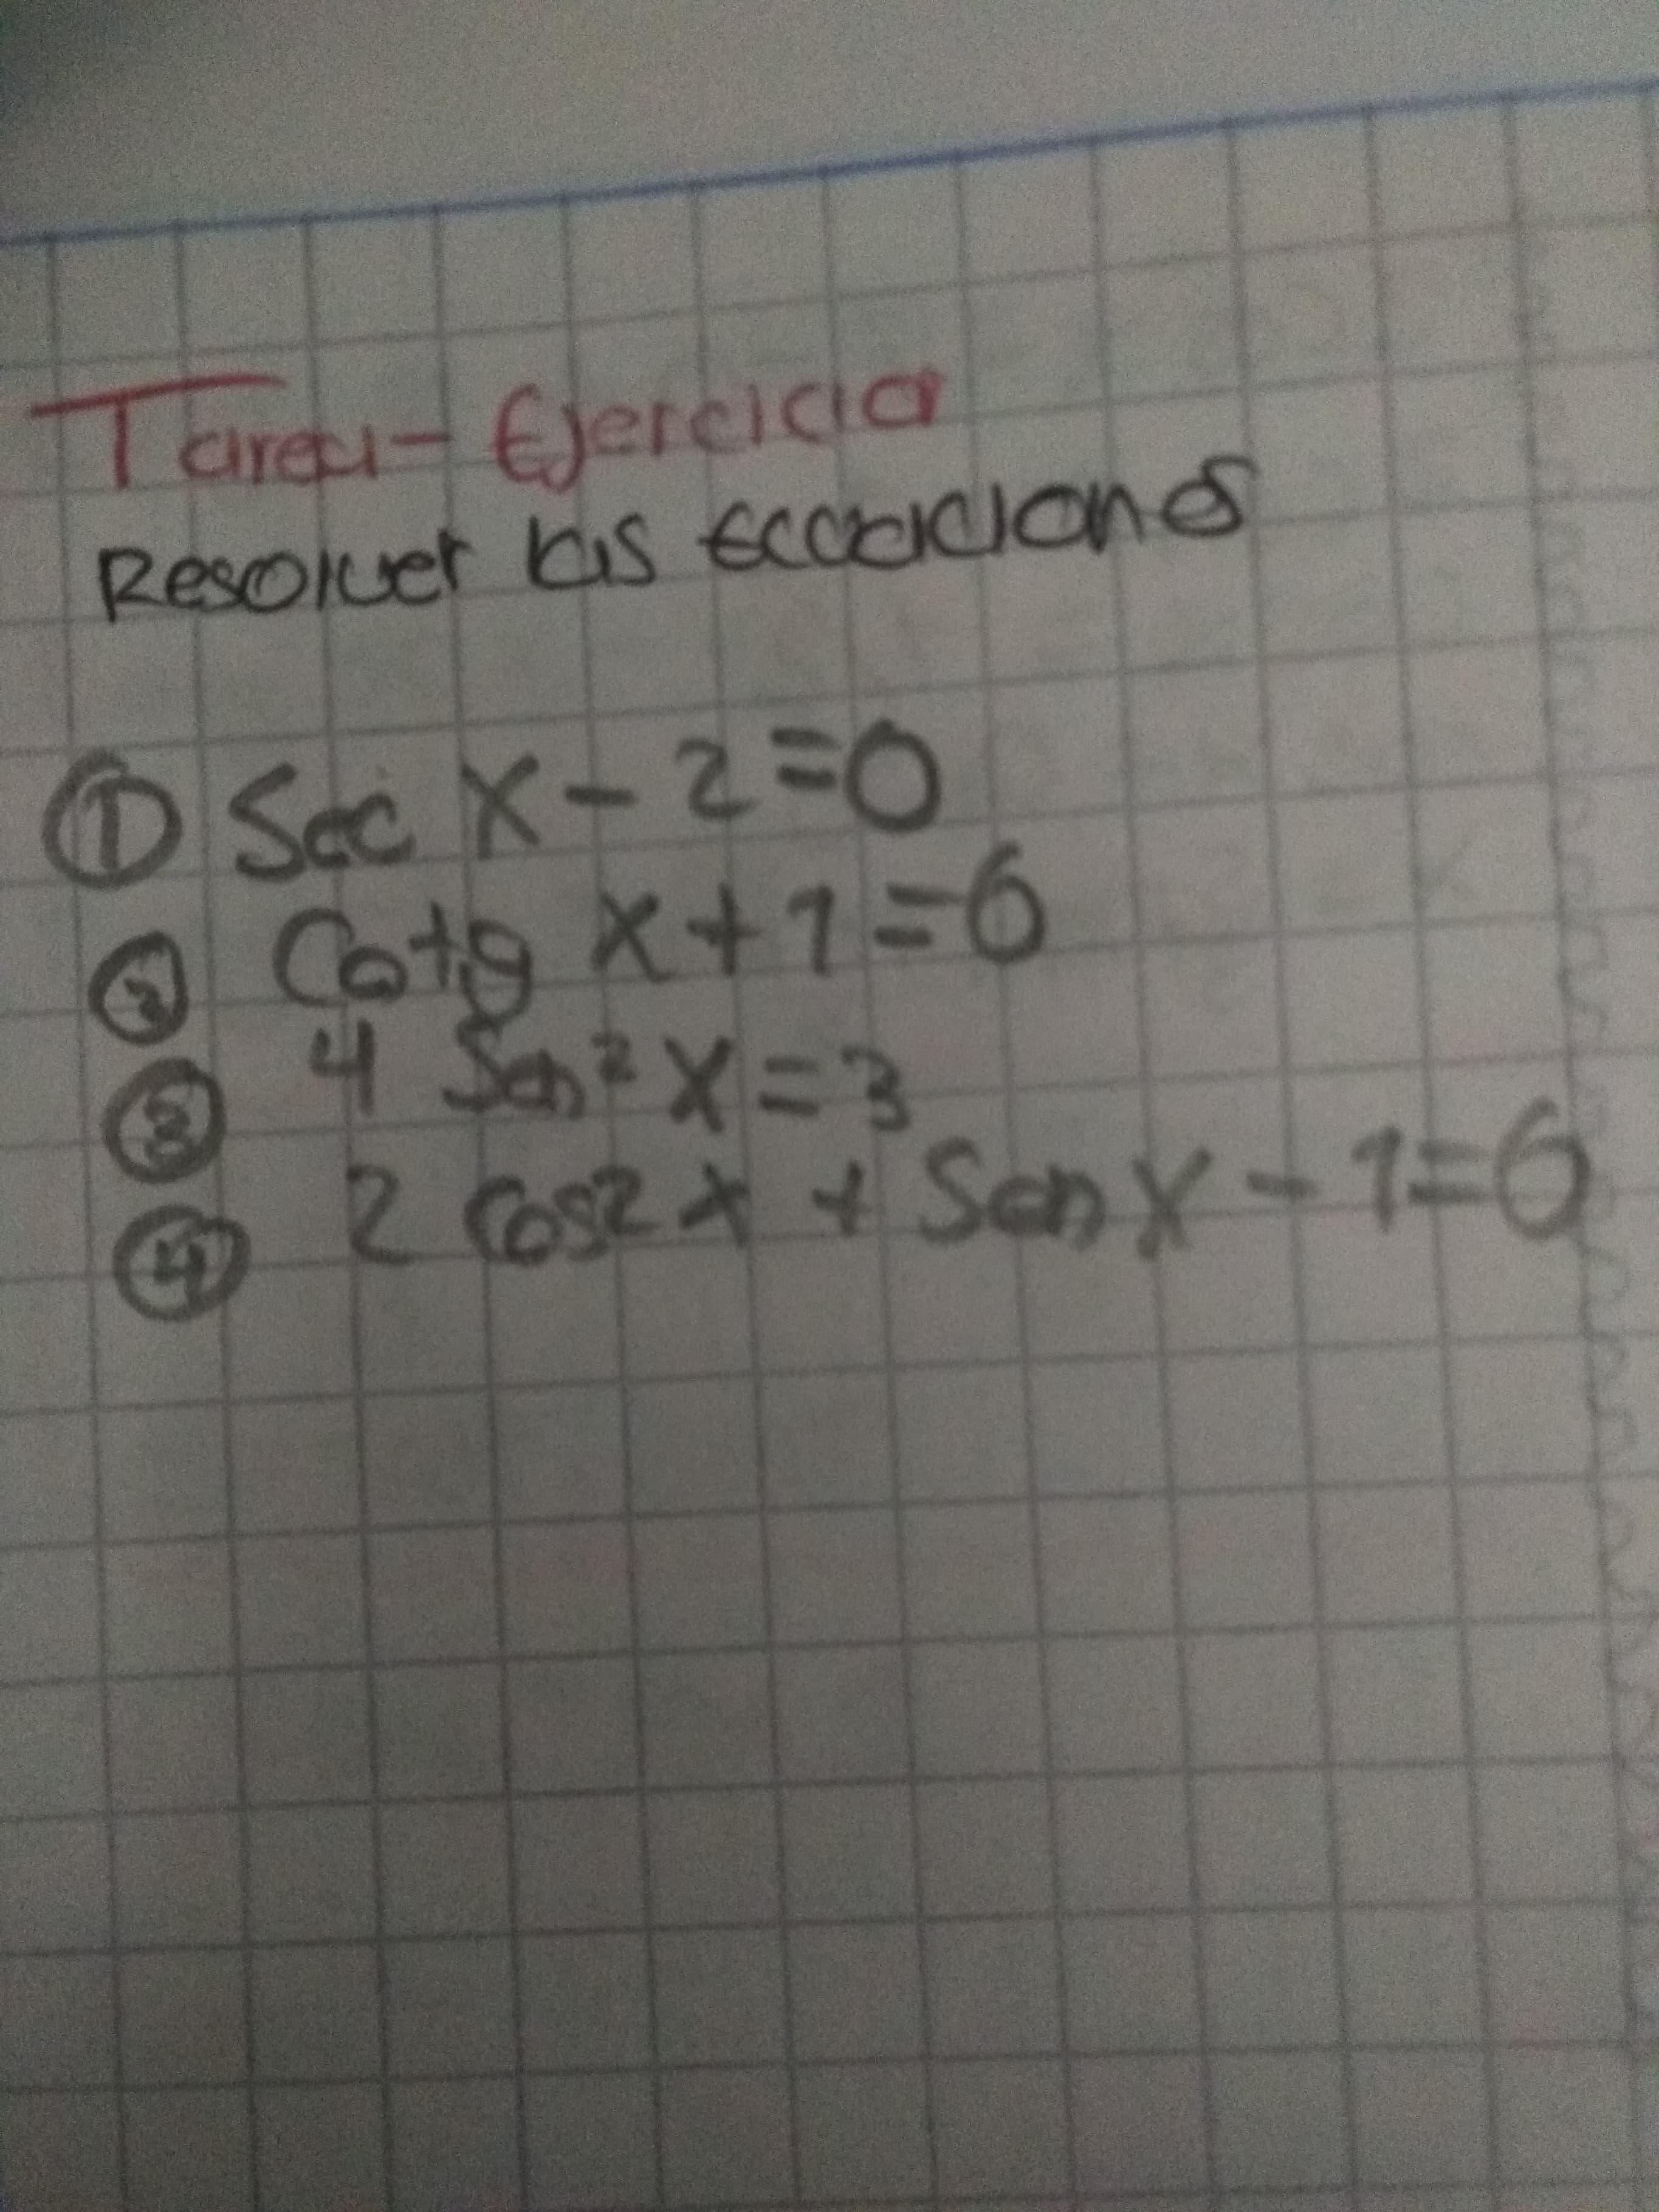 Tarea - Ejercicio
Resolver las Ecuaciones
① Sec x - 2 = 0
② Cotg x + 1 = 0
③ 4 Sen² x = 3
④ 2 Cos² x + Sen x - 1 = 0